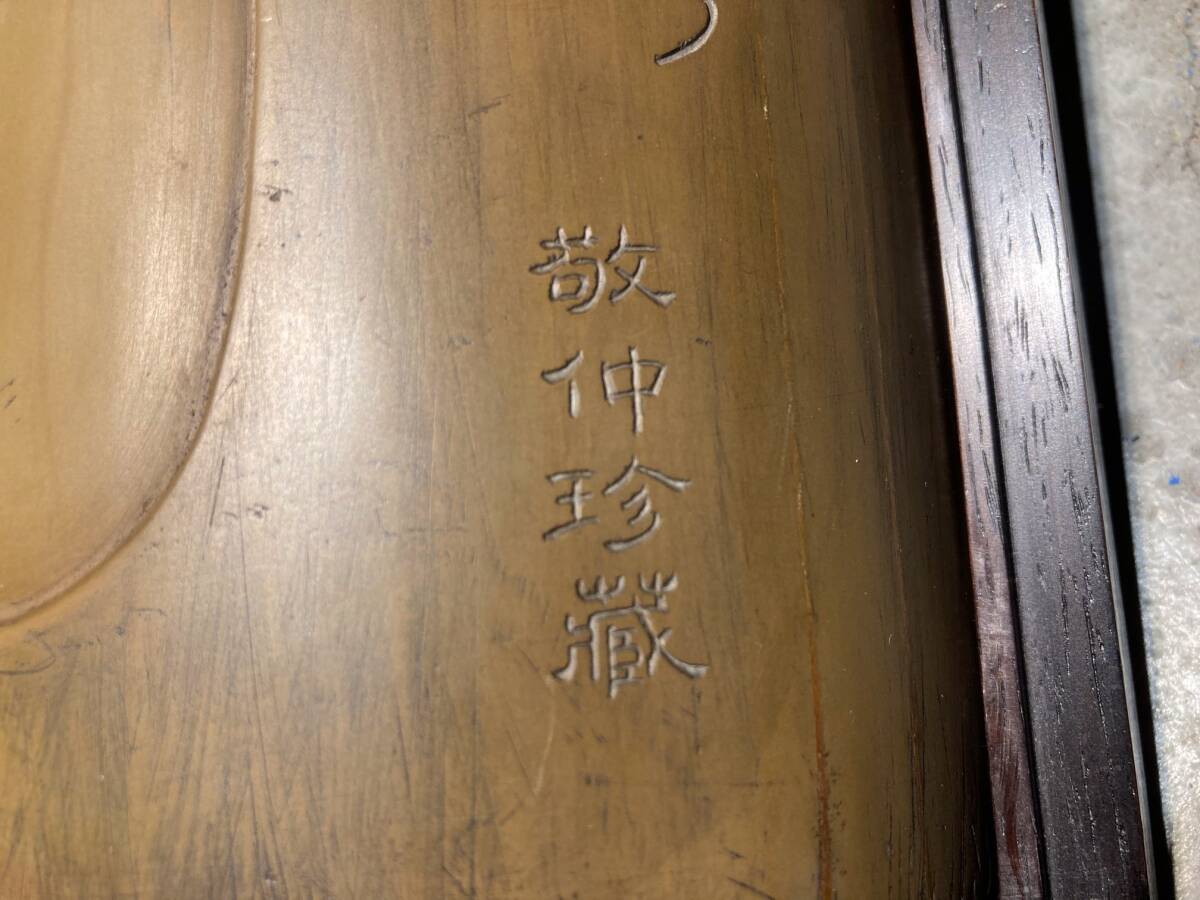 敬仲珍藏